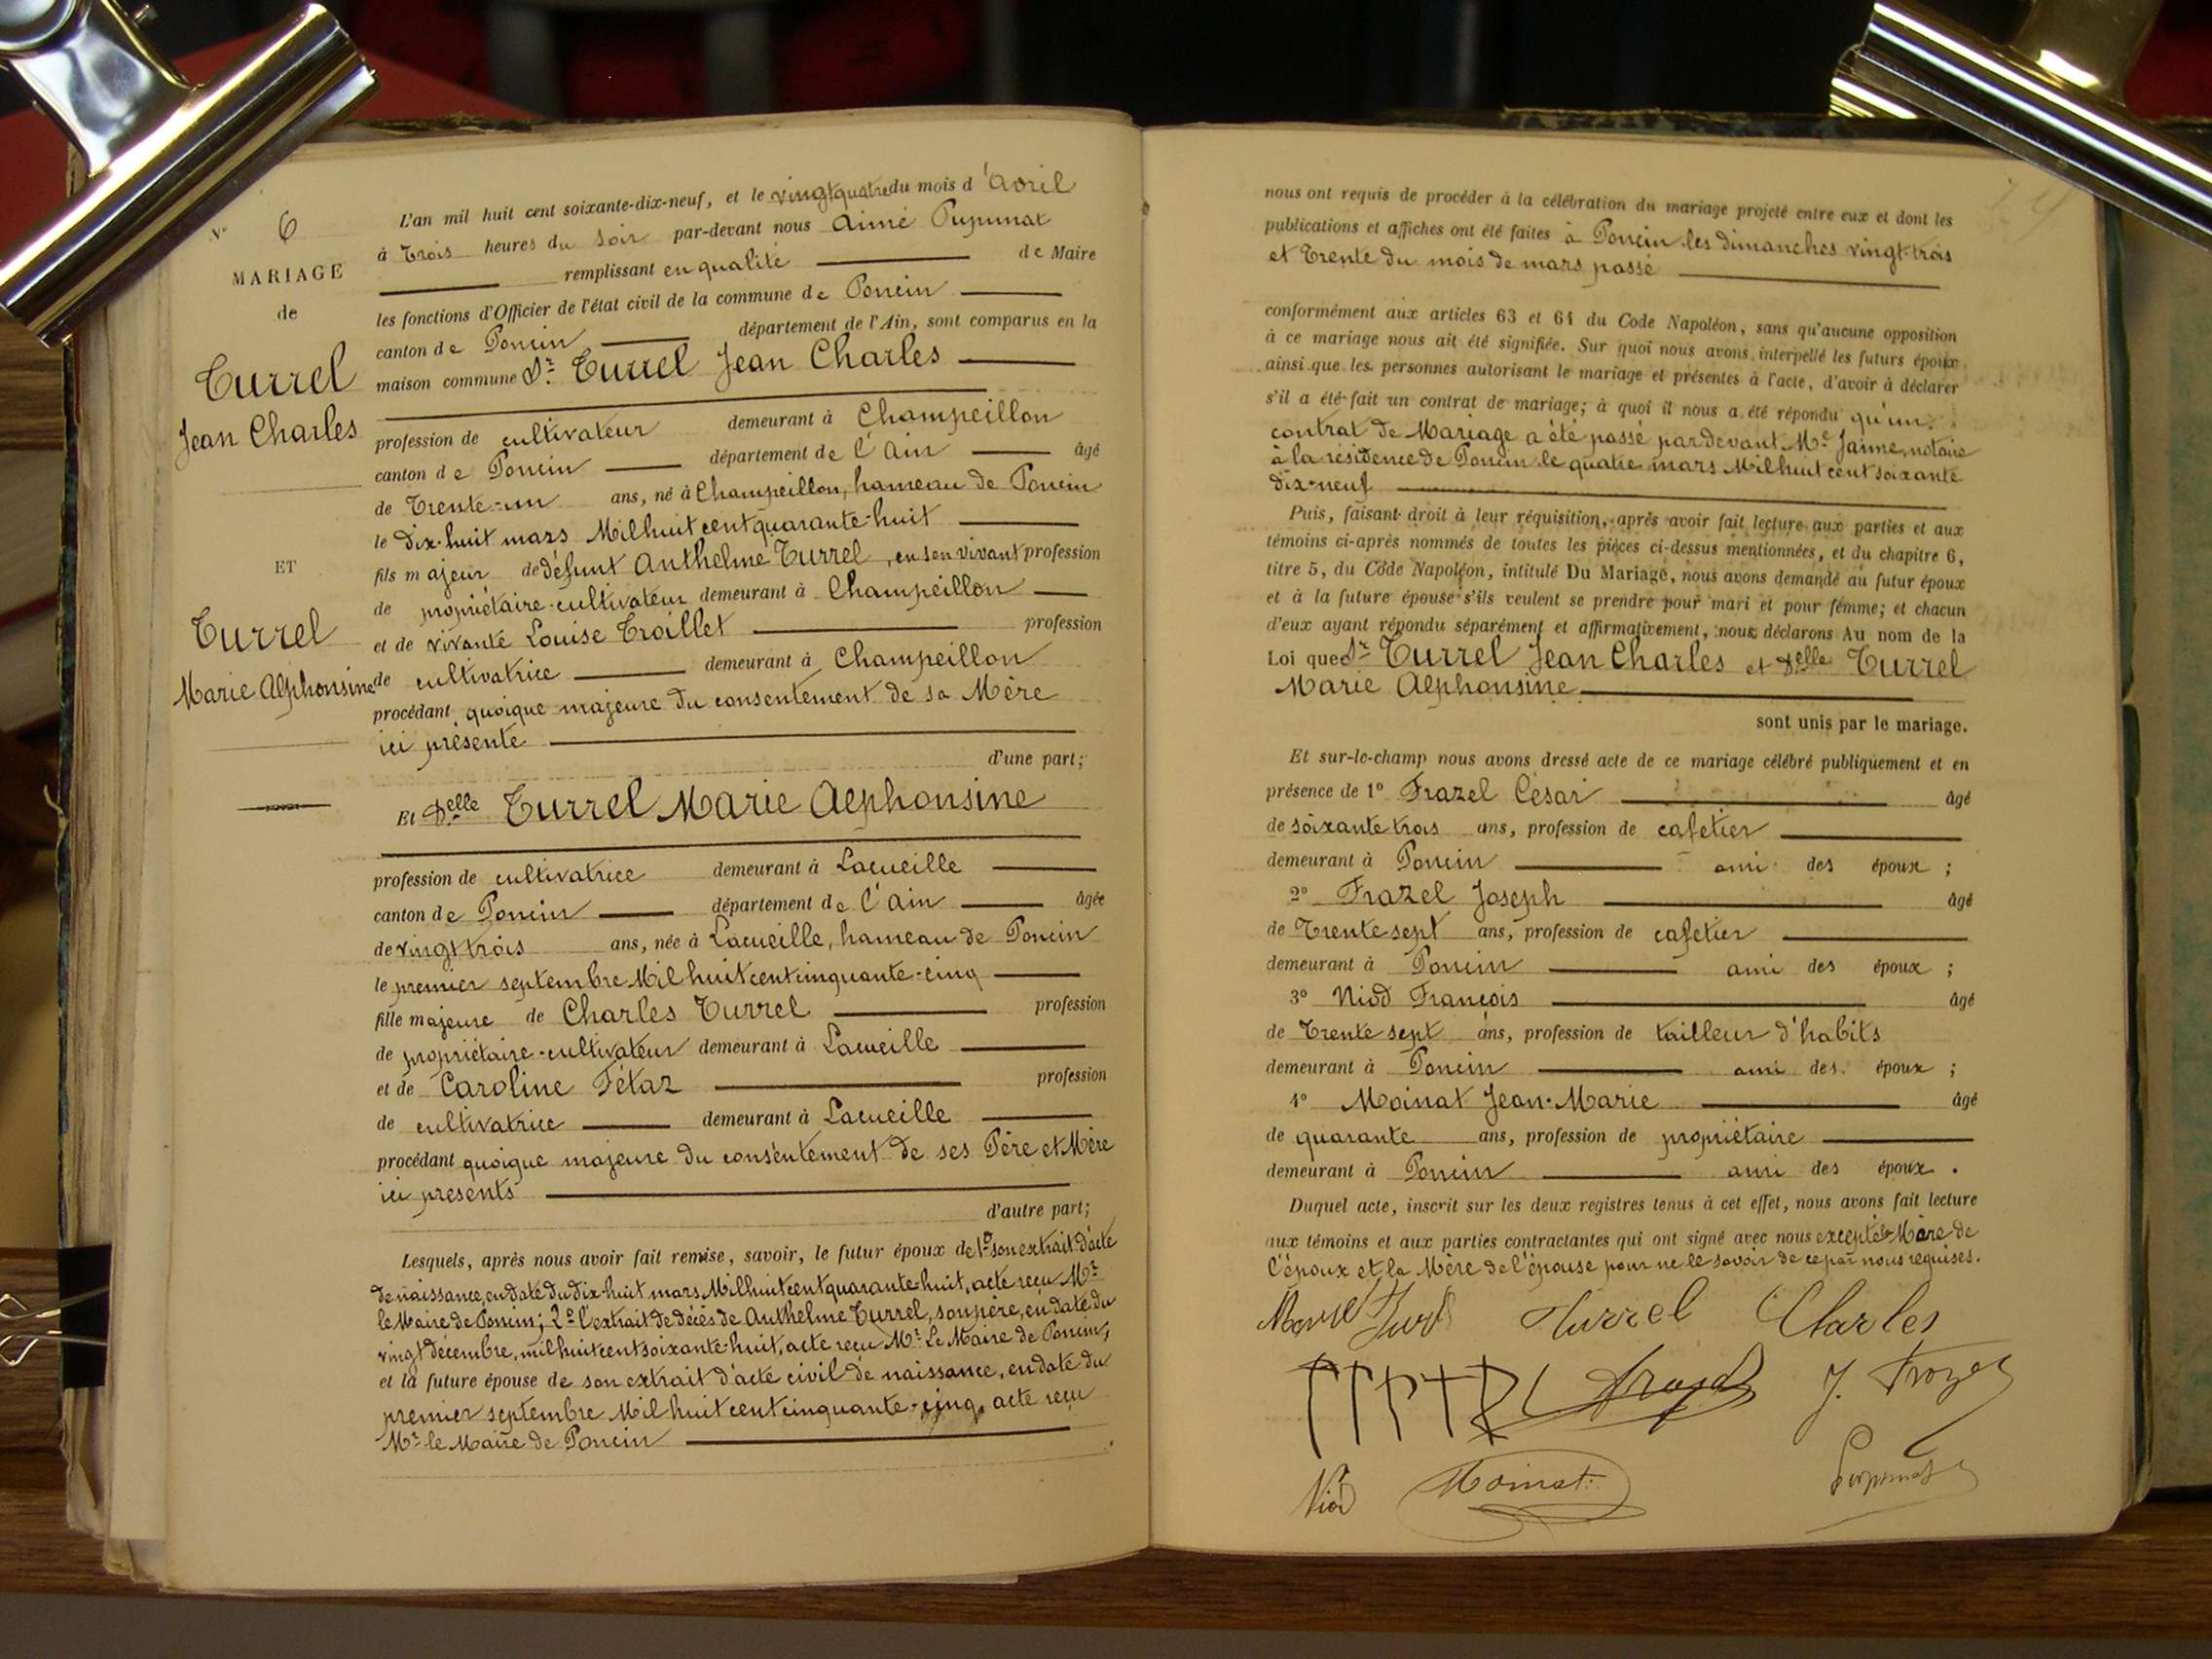 N° 6
MARIAGE
de
Turrel
Jean Charles
ET
Turrel
Marie Alphonsine
L'an mil huit cent soixante-dix-neuf, et le vingt quatre du mois d'avril
à Trois heures du soir par-devant nous Aimé Pupunat
remplissant en qualité de Maire
les fonctions d'Officier de l'état civil de la commune de Poncin
canton de Poncin département de l'Ain, sont comparus en la
maison commune Sr Turrel Jean Charles
profession de cultivateur demeurant à Champeillon
canton de Poncin département de l'Ain âgé
de Trente-un ans, né à Champeillon, hameau de Poncin
le dix-huit mars Mil huit cent quarante-huit
fils majeur de défunt Anthelme Turrel, en son vivant profession
de propriétaire-cultivateur demeurant à Champeillon
et de vivante Louise Troillet profession
de cultivatrice demeurant à Champeillon
procédant quoique majeure du consentement de sa Mère
ici présente
d'une part;
Et Delle Turrel Marie Alphonsine
profession de cultivatrice demeurant à Lacueille
canton de Poncin département de l'Ain âgée
de vingt trois ans, née à Lacueille, hameau de Poncin
le premier septembre Mil huit cent cinquante-cinq
fille majeure de Charles Turrel profession
de propriétaire-cultivateur demeurant à Lacueille
et de Caroline Fétaz profession
de cultivatrice demeurant à Lacueille
procédant quoique majeure du consentement de ses Père et Mère
ici presents
d'autre part;
Lesquels, après nous avoir fait remise, savoir, le futur époux de 1° son extrait d'acte
de naissance, en date du dix-huit mars Mil huit cent quarante-huit, acte reçu Mr
le Maire de Poncin; 2° l'extrait de décès de Anthelme Turrel, son père, en date du
vingt décembre, mil huit cent soixante-huit, acte reçu Mr Le Maire de Poncin,
et la future épouse de son extrait d'acte civil de naissance, en date du
premier septembre Mil huit cent cinquante-cinq, acte reçu
Mr le Maire de Poncin
nous ont requis de procéder à la célébration du mariage projeté entre eux et dont les
publications et affiches ont été faites à Poncin les dimanches vingt-trois
et Trente du mois de mars passé
conformément aux articles 63 et 64 du Code Napoléon, sans qu'aucune opposition
à ce mariage nous ait été signifiée. Sur quoi nous avons interpellé les futurs époux
ainsi que les personnes autorisant le mariage et présentes à l'acte, d'avoir à déclarer
s'il a été fait un contrat de mariage; à quoi il nous a été répondu qu'un
contrat de Mariage a été passé par devant Me Jaime, notaire
à la résidence de Poncin le quatre mars Mil huit cent soixante
dix-neuf
Puis, faisant droit à leur réquisition, après avoir fait lecture aux parties et aux
témoins ci-après nommés de toutes les pièces ci-dessus mentionnées, et du chapitre 6,
titre 5, du Code Napoléon, intitulé Du Mariage, nous avons demandé au futur époux
et à la future épouse s'ils veulent se prendre pour mari et pour femme; et chacun
d'eux ayant répondu séparément et affirmativement, nous déclarons Au nom de la
Loi que Sr Turrel Jean Charles et Delle Turrel
Marie Alphonsine
sont unis par le mariage.
Et sur-le-champ nous avons dressé acte de ce mariage célébré publiquement et en
présence de 1° Frazel César âgé
de soixante trois ans, profession de cafetier
demeurant à Poncin ami des époux ;
2° Frazel Joseph âgé
de Trente sept ans, profession de cafetier
demeurant à Poncin ami des époux ;
3° Niod François âgé
de Trente sept ans, profession de tailleur d'habits
demeurant à Poncin ami des époux ;
4° Moinat Jean-Marie âgé
de quarante ans, profession de propriétaire
demeurant à Poncin ami des époux .
Duquel acte, inscrit sur les deux registres tenus à cet effet, nous avons fait lecture
aux témoins et aux parties contractantes qui ont signé avec nous excepté la Mère de
l'époux et la Mère de l'épouse pour ne le savoir de ce par nous requises.
Turrel Charles
J. Frazel
Niod Moinat Pupunat